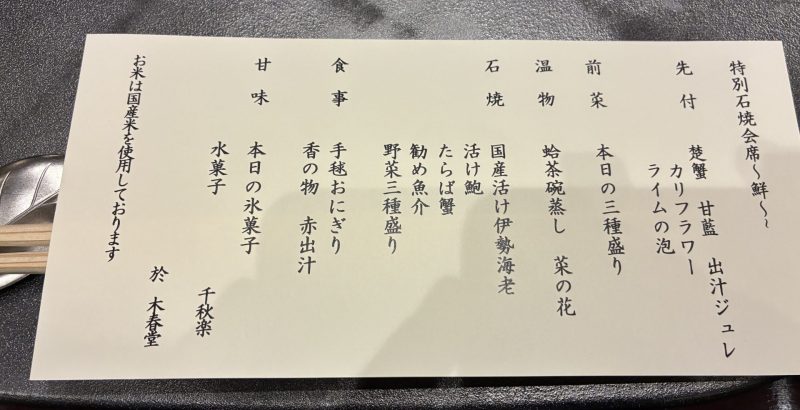 特別石焼会席～鮮～
先付
楚蟹 甘藍 出汁ジュレ
カリフラワー
ライムの泡
前菜
本日の三種盛り
温物
蛤茶碗蒸し 菜の花
石焼
国産活け伊勢海老
活け鮑
たらば蟹
勧め魚介
野菜三種盛り
食事
手毬おにぎり
香の物 赤出汁
甘味
本日の氷菓子
水菓子
千秋楽
於 木春堂
お米は国産米を使用しております